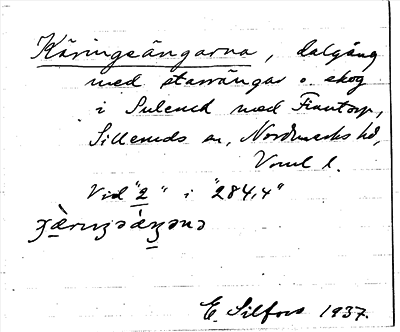 Käringsängarna, dalgång
med starrängar o. skog
i Sulerud med Fiantorp,
Silleruds sn, Nordmarks hd,
Vrml l.
Vid "2" i "284,4"
E. Silfors 1937.